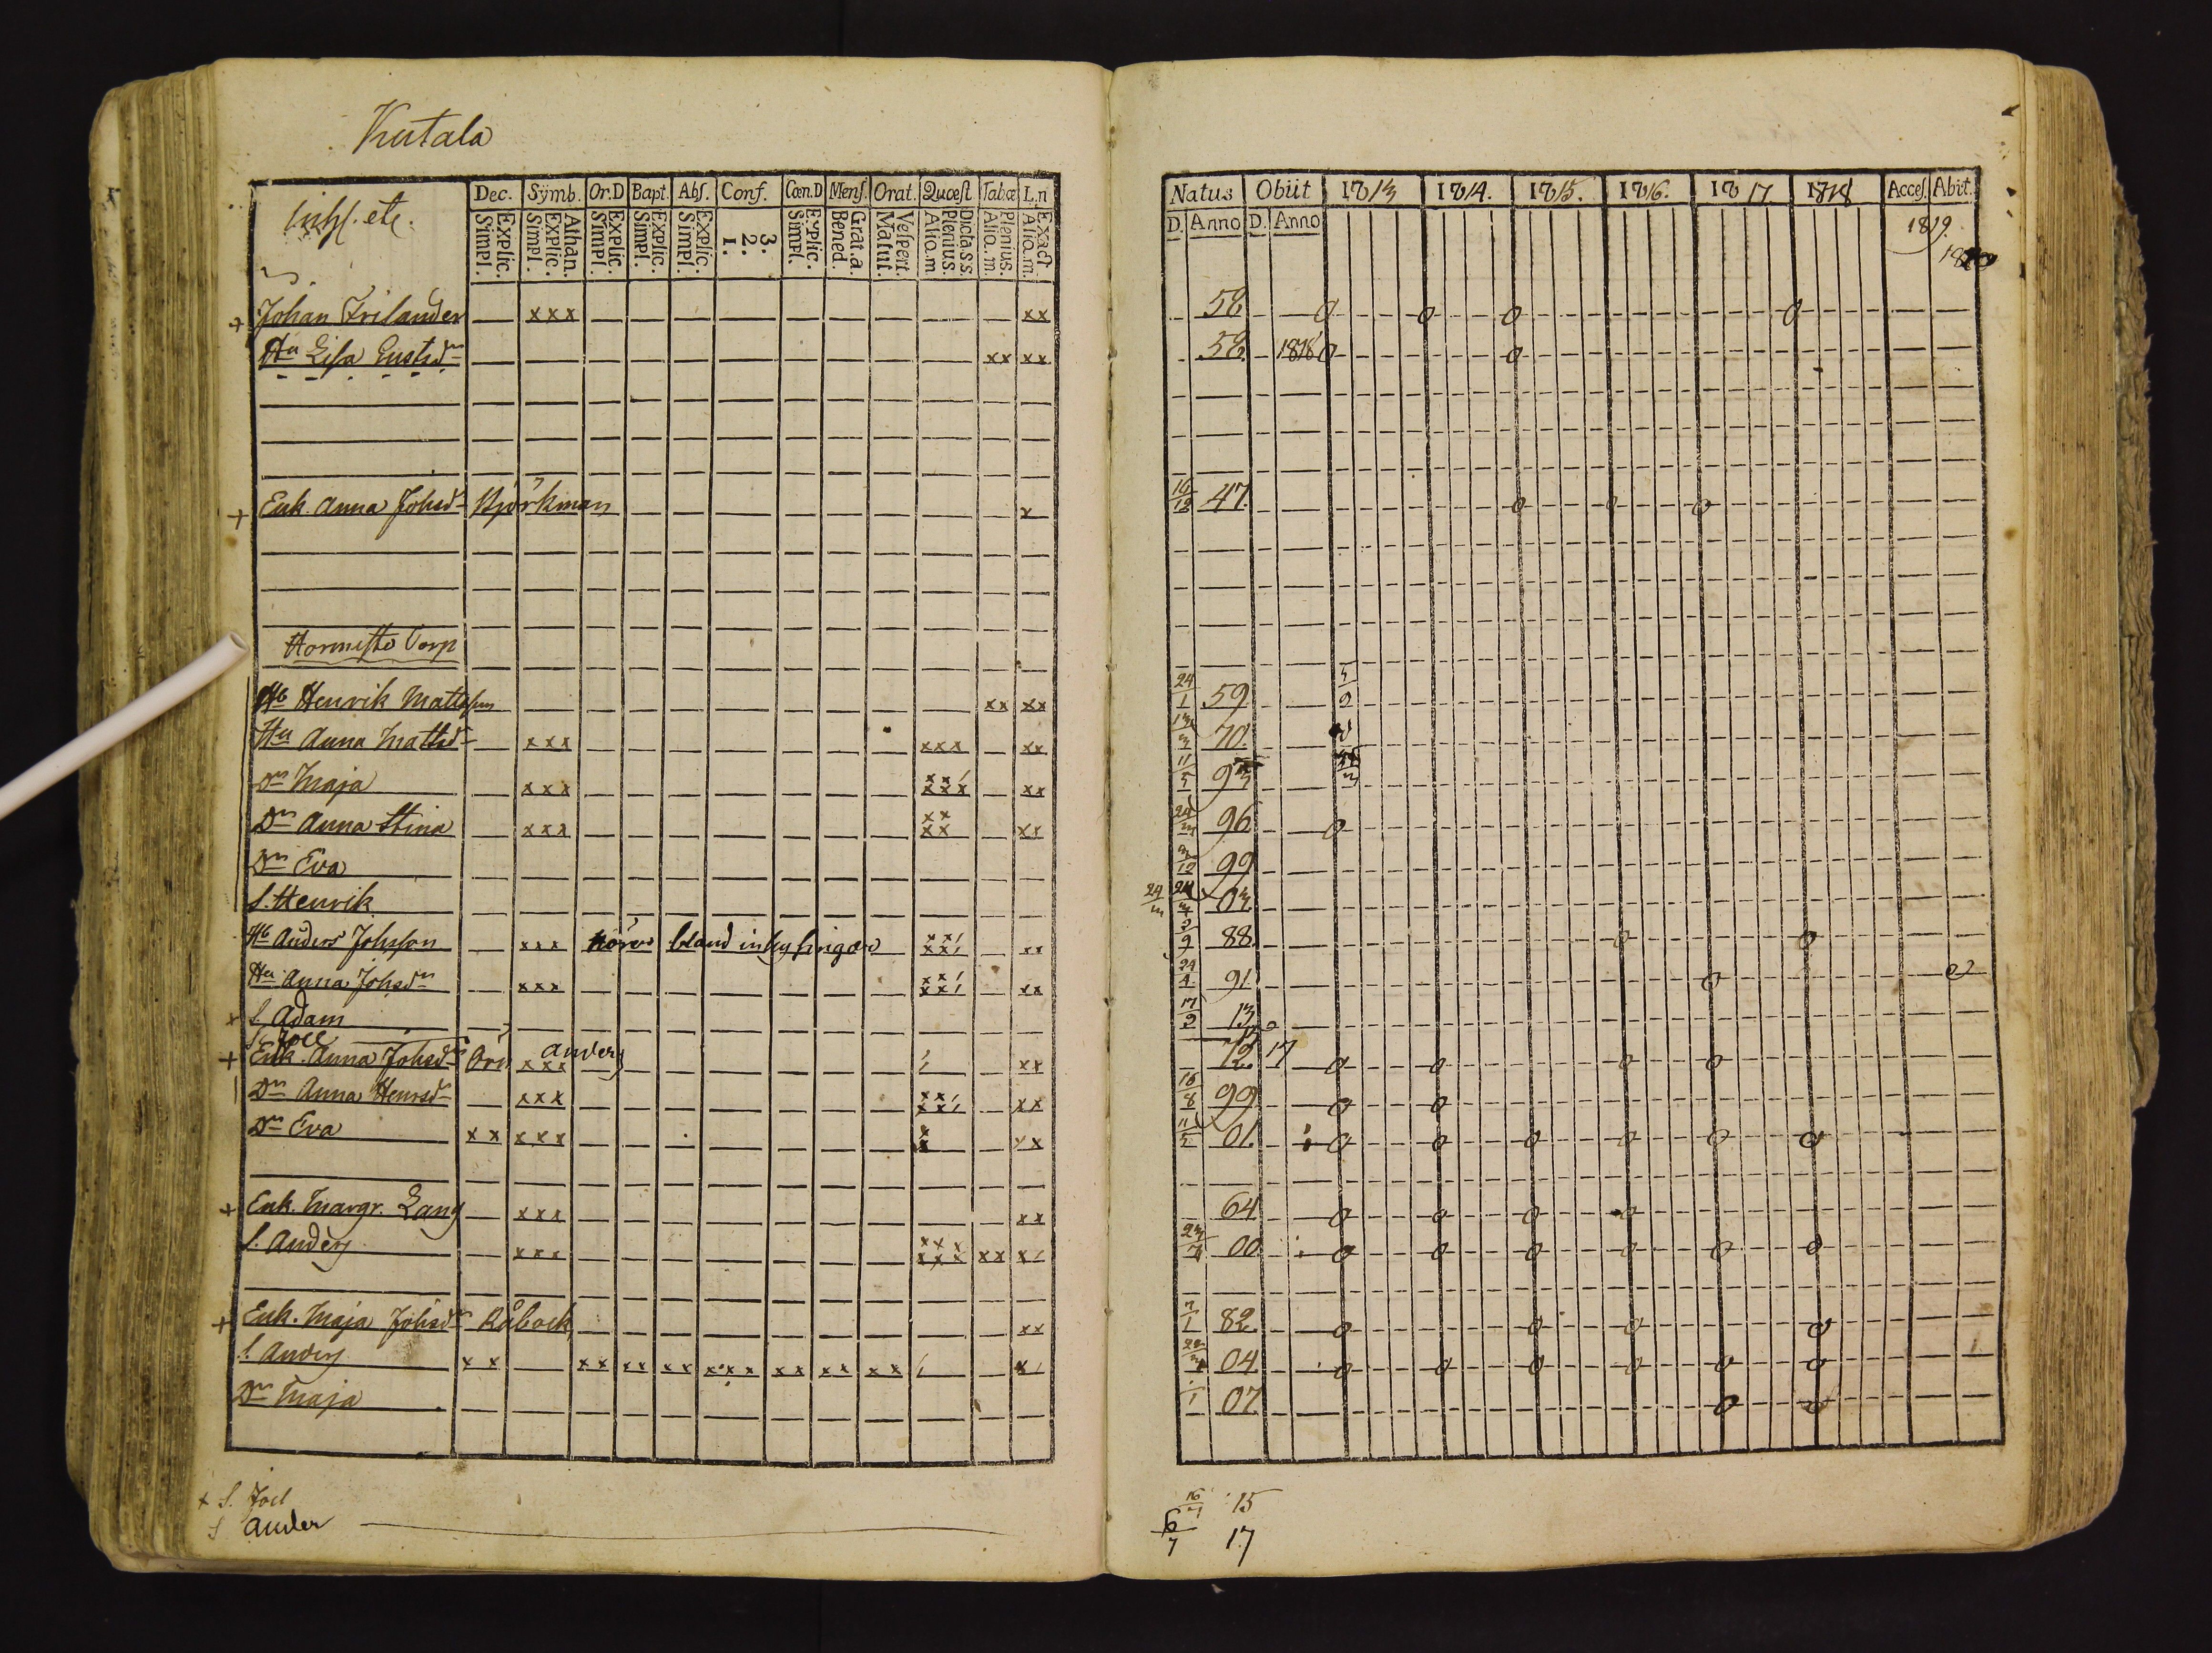 Kutala
Inhs. etc.
Dec. Sÿmb. Or.D Bapt. Abs. Conf. Cœn.D Mens. Orat. Quæst. Tabæ L.n
Explic. Simpl. Athan. Explic. Simpl. Explic. Simpl. Explic. Simpl. Explic. Simpl. 3. 2. 1. Explic. Simpl. Grat.a. Bened. Vespert. Matut. Dicta.s.s. Plenius. Alio.m. Plenius. Alio.m. Exact Alio.m.
+ Johan Frilander xxx xx
Hu Lisa Gustsdr xx xx
+ Enk. Anna Johsdr Björkman x
Hormisto Torp
Hb Henrik Mattsson xx xx
Hu Anna Mattsdr xxx xxx xx
Dr Maja xxx xx/ xxx xx
Dr Anna Stina xxx xx xx xx
Dr Eva
S. Henrik
Hb Anders Johsson xxx hörer bland inhysingar xx/ xx/ xx
Hu Anna Johsdr xxx xx/ xx/ xx
x S. Adam
S. Joel
+ Enk. Anna Johsdr Örn Anders xxx / xx
Dr Anna Henrsdr xxx xx/ xx/ xx
Dr Eva xx xxx x x xx
+ Enk. Margr. Lang xxx xx
S. Anders xxx xxx xxx xx x/
+ Enk. Maja Johsdr Råbock xx
S. Anders xx xx xx xx xxx xx xx xx / x/
Dr Maja
x S. Joel
S Ander
Natus Obiit 1813 1814. 1815. 1816. 1817. 1818 Acces. Abiit.
D. Anno D. Anno 1819.
1820
58 0 0 0 0
58. 1818 0 0
16/12 47. 0 0 0
24/1 59 5/9
70.
11/5 93
96 0
99
24/3 03
88. 0 0
24/4 91. 0
17/9 13
15
72. 17 0 0 0 0
16/8 99 0 0
01. 0 0 0 0 0 0
64 0 0 0 0
23/7 00 0 0 0 0 0 0
82. 0 0 0 0
04 0 0 0 0 0 0
07. 0 0
15
6/7 17